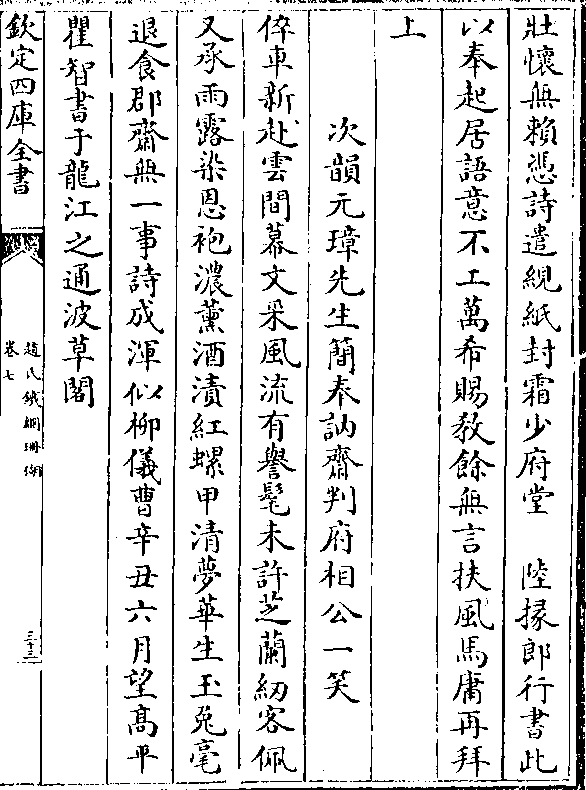 壯懷無賴憑詩遣繭紙封霜少府堂　陸掾郎行書此
以奉起居語意不工萬希賜教餘無言扶風馬庸再拜
上
次韻元璋先生簡奉訥齋判府相公一笑
倅車新赴雲間幕文采風流有譽髦未許芝蘭紉客佩
又承雨露染恩袍濃薰酒漬紅螺甲清夢華生玉兔毫
退食郡齋無一事詩成渾似柳儀曹辛丑六月望高平
瞿智書于龍江之通波草閣
欽定四庫全書
趙氏鐵網珊瑚
卷七
三十三